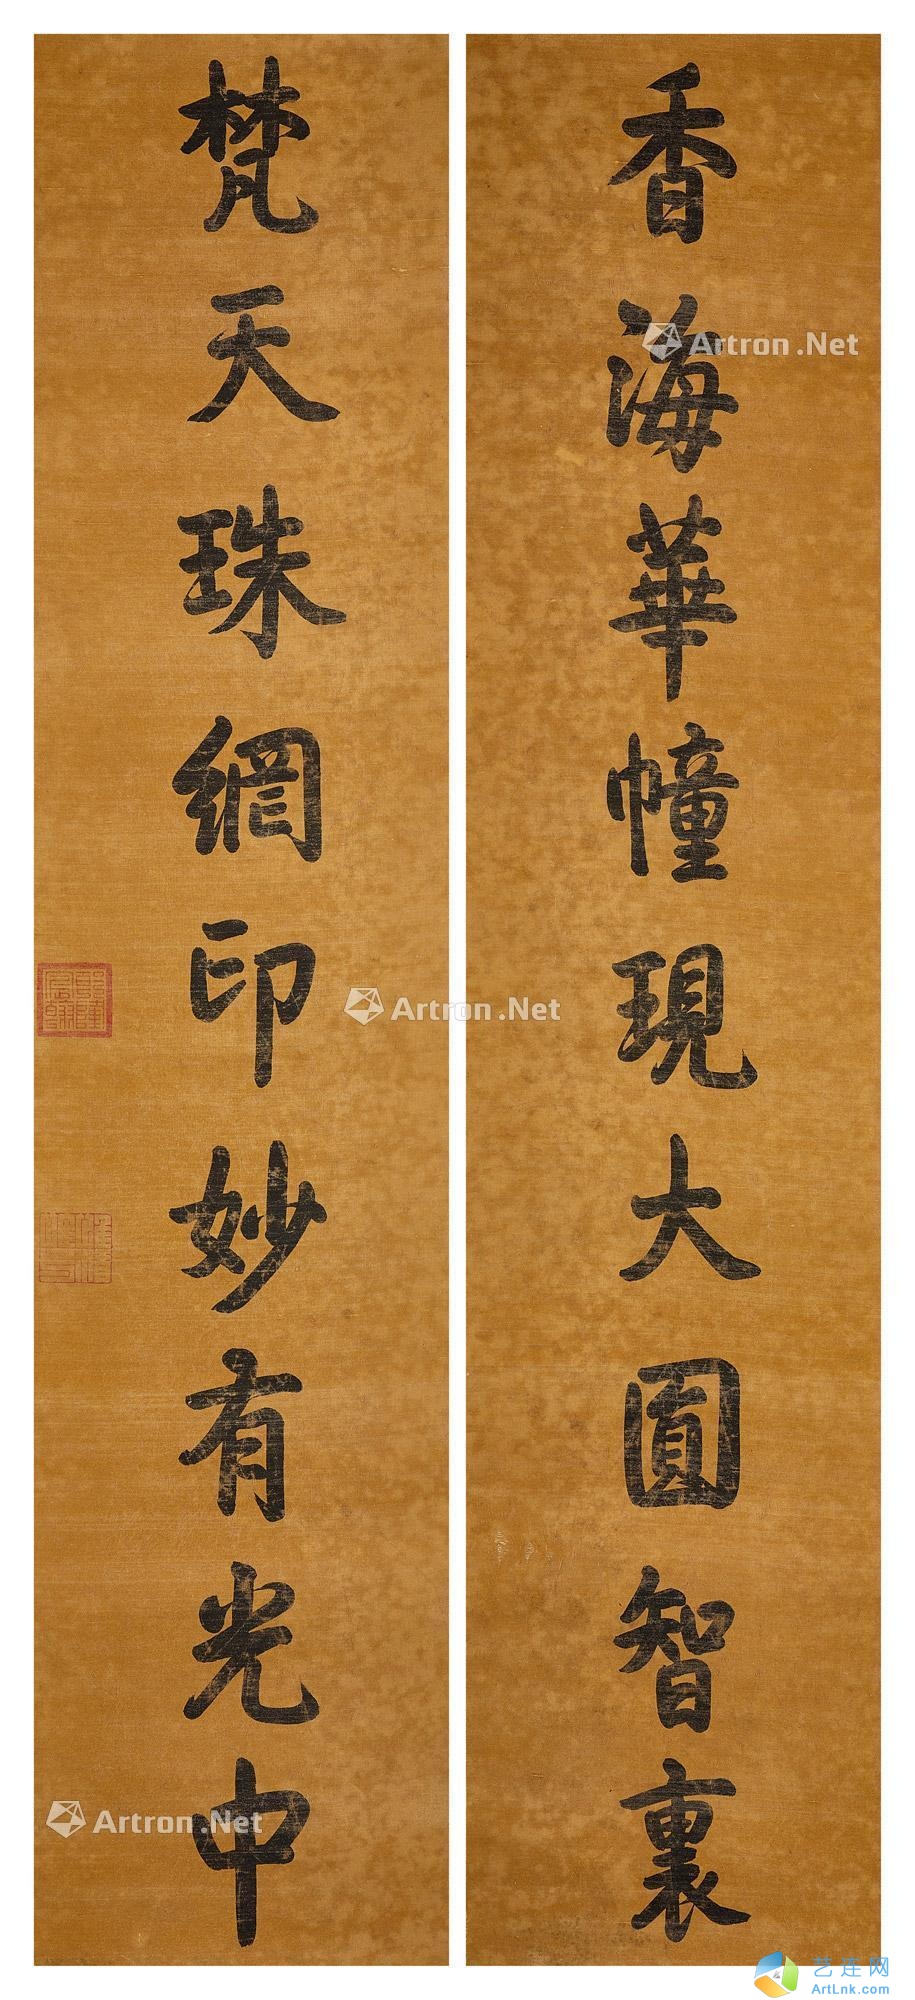 香海華幢現大圓智裏
梵天珠網印妙有光中
Artron.Net
Artron.Net
Artron.Net
艺连网
ArtLnk.com